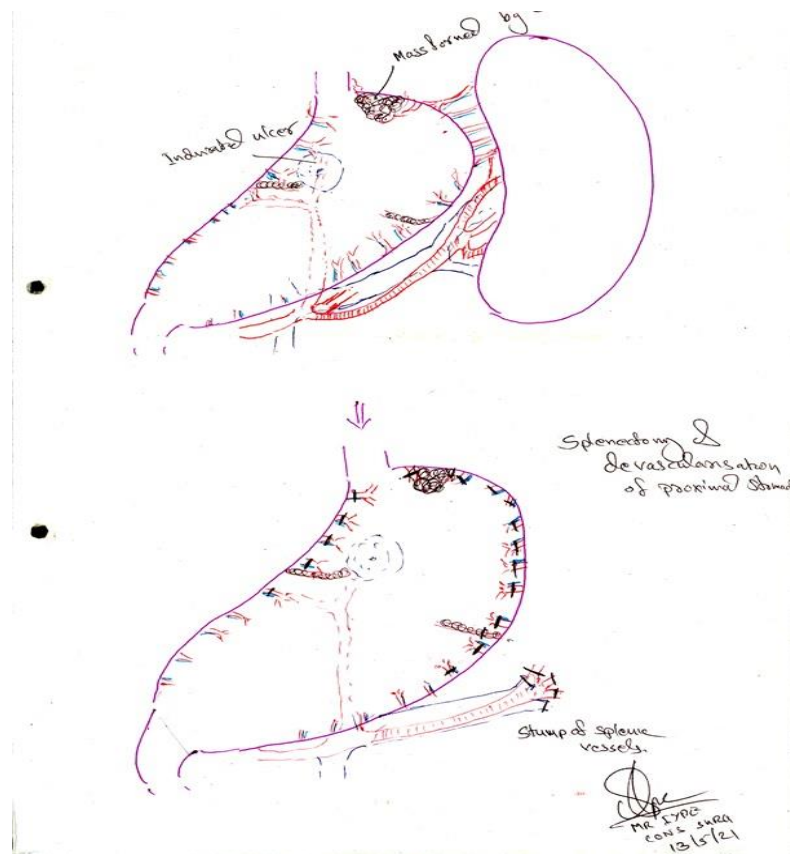 Mass formed by
Indurated ulcer
Splenectomy &
devascularisation
of proximal
Stump of splenic
vessels.
MR IYPE
CONS SURG
13/5/21